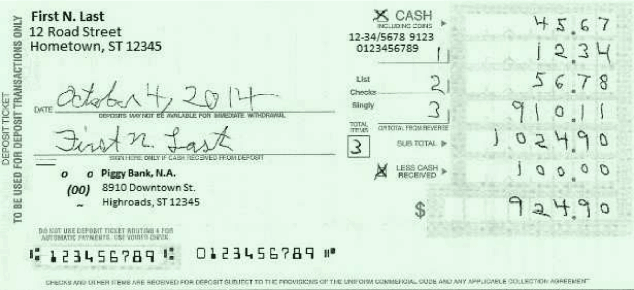 DEPOSIT TICKET
TO BE USED FOR DEPOSIT TRANSACTIONS ONLY
First N. Last
12 Road Street
Hometown, ST 12345
DATE October 4, 2014
DEPOSITS MAY NOT BE AVAILABLE FOR IMMEDIATE WITHDRAWAL
First N. Last
SIGN HERE ONLY IF CASH RECEIVED FROM DEPOSIT
Piggy Bank, N.A.
8910 Downtown St.
Highroads, ST 12345
DO NOT USE DEPOSIT TICKET ROUTING # FOR
AUTOMATIC PAYMENTS. USE VOIDED CHECK.
123456789 0123456789
X CASH 45.67
INCLUDING COINS
12-34/5678 9123
0123456789
1 12.34
List
Checks
Singly
2 56.78
3 910.11
TOTAL
ITEMS
3
OR TOTAL FROM REVERSE
SUB TOTAL 1024.90
X LESS CASH
RECEIVED 100.00
$ 924.90
CHECKS AND OTHER ITEMS ARE RECEIVED FOR DEPOSIT SUBJECT TO THE PROVISIONS OF THE UNIFORM COMMERCIAL CODE AND ANY APPLICABLE COLLECTION AGREEMENT